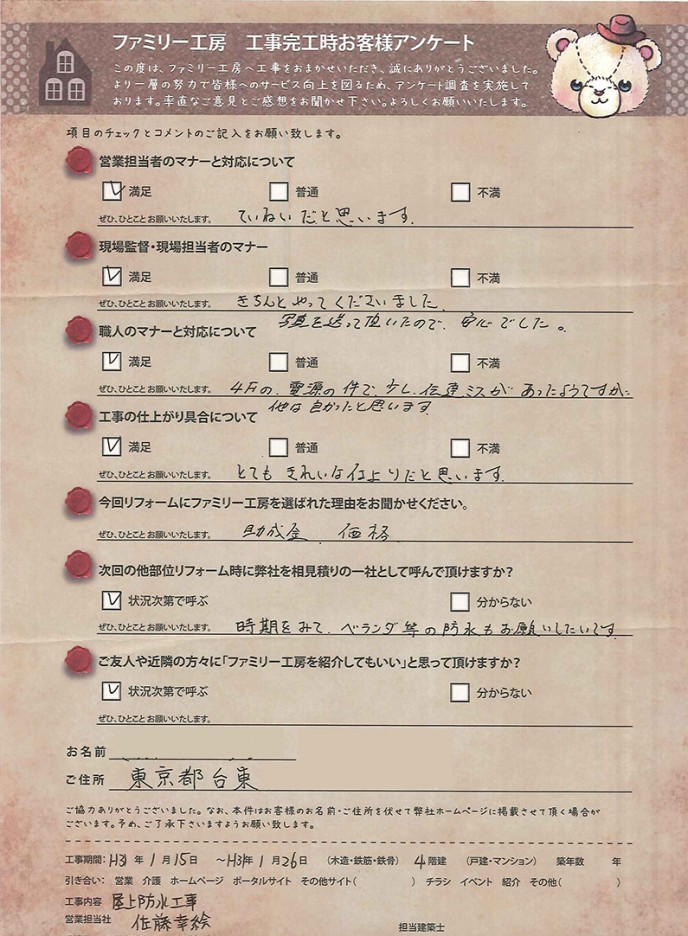 ファミリー工房　工事完工時お客様アンケート
この度は、ファミリー工房へ工事をおまかせいただき、誠にありがとうございました。
より一層の努力で皆様へのサービス向上を図るため、アンケート調査を実施して
おります。率直なご意見とご感想をお聞かせ下さい。よろしくお願いいたします。
項目のチェックとコメントのご記入をお願い致します。
営業担当者のマナーと対応について
満足 普通 不満
ぜひ、ひとことお願いいたします。 ていねいだと思います。
現場監督・現場担当者のマナー
満足 普通 不満
ぜひ、ひとことお願いいたします。 きちんとやってくださいました。
写真を送って頂いたので、安心でした。
職人のマナーと対応について
満足 普通 不満
ぜひ、ひとことお願いいたします。 4Fの、電源の件で、少し、伝達ミスがあったようですが、
他は良かったと思います
工事の仕上がり具合について
満足 普通 不満
ぜひ、ひとことお願いいたします。 とてもきれいな仕上りだと思います。
今回リフォームにファミリー工房を選ばれた理由をお聞かせください。
ぜひ、ひとことお願いいたします。 助成金、価格
次回の他部位リフォーム時に弊社を相見積りの一社として呼んで頂けますか?
状況次第で呼ぶ 分からない
ぜひ、ひとことお願いいたします。 時期をみて、ベランダ等の防水もお願いしたいです。
ご友人や近隣の方々に「ファミリー工房を紹介してもいい」と思って頂けますか?
状況次第で呼ぶ 分からない
ぜひ、ひとことお願いいたします。
お名前
ご住所 東京都台東
ご協力ありがとうございました。なお、本件はお客様のお名前・ご住所を伏せて弊社ホームページに掲載させて頂く場合が
ございます。予め、ご了承下さいますようお願い致します。
工事期間：H31年1月15日 ～H31年1月26日 （木造・鉄筋・鉄骨） 4階建 （戸建・マンション） 築年数 年
引き合い： 営業 介護 ホームページ ポータルサイト その他サイト( ) チラシ イベント 紹介 その他( )
工事内容 屋上防水工事
営業担当社 佐藤幸絵
担当建築士